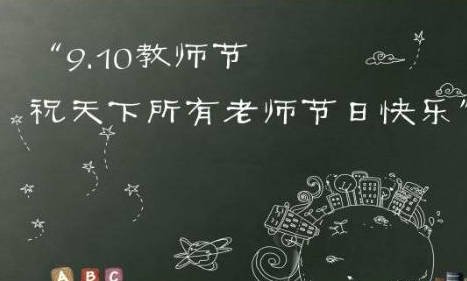 “9.10教师节
祝天下所有老师节日快乐”
A B C